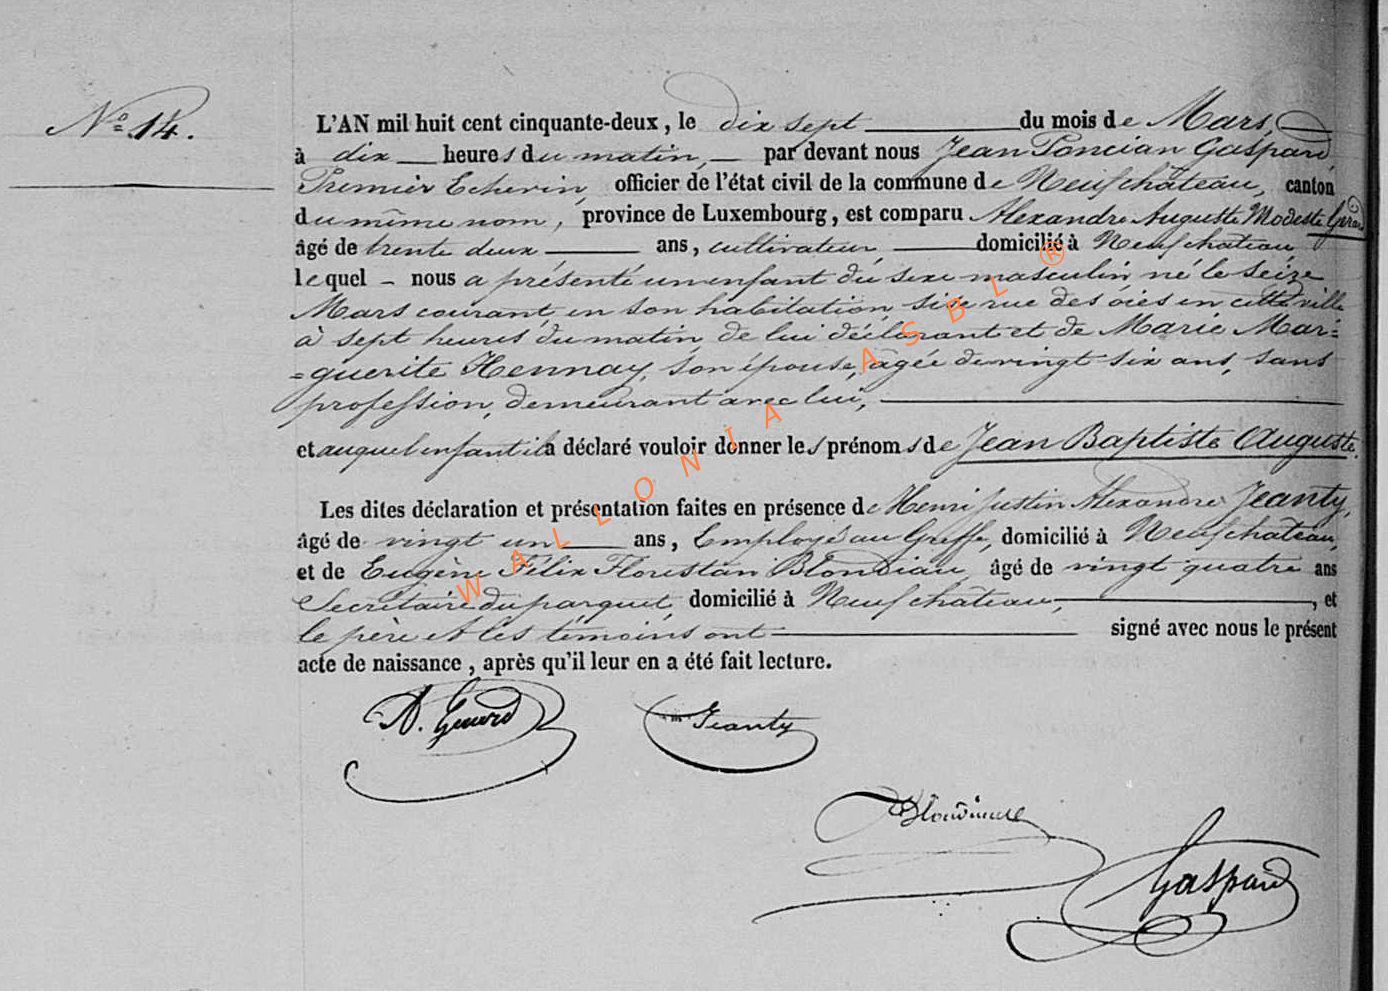 Nº 14.
L'AN mil huit cent cinquante-deux, le dix sept du mois de Mars,
à dix heures du matin, par devant nous Jean Poncian Gaspard,
Premier Echevin, officier de l'état civil de la commune de Neufchâteau, canton
du même nom, province de Luxembourg, est comparu Alexandre Auguste Modeste Gérard
âgé de trente deux ans, cultivateur domicilié à Neufchateau,
lequel - nous a présenté un enfant du sexe masculin né le seize
Mars courant, en son habitation, sise rue des oies en cette ville
à sept heures du matin de lui déclarant et de Marie Mar=
=guerite Hennay, son épouse, âgée de vingt six ans, sans
profession, demeurant avec lui,
et auquel enfant il a déclaré vouloir donner les prénoms de Jean Baptiste Auguste.
Les dites déclaration et présentation faites en présence de Henri Justin Alexandre Jeanty,
âgé de vingt un ans, Employé au Greffe, domicilié à Neufchateau,
et de Eugène Félix Florestan Blondiau, âgé de vingt quatre ans
Secrétaire du parquet, domicilié à Neufchâteau, , et
le père et les témoins ont signé avec nous le présent
acte de naissance, après qu'il leur en a été fait lecture.
A. Gérard
Jeanty
Blondiau
Gaspard
WALLONIA ASBL ®